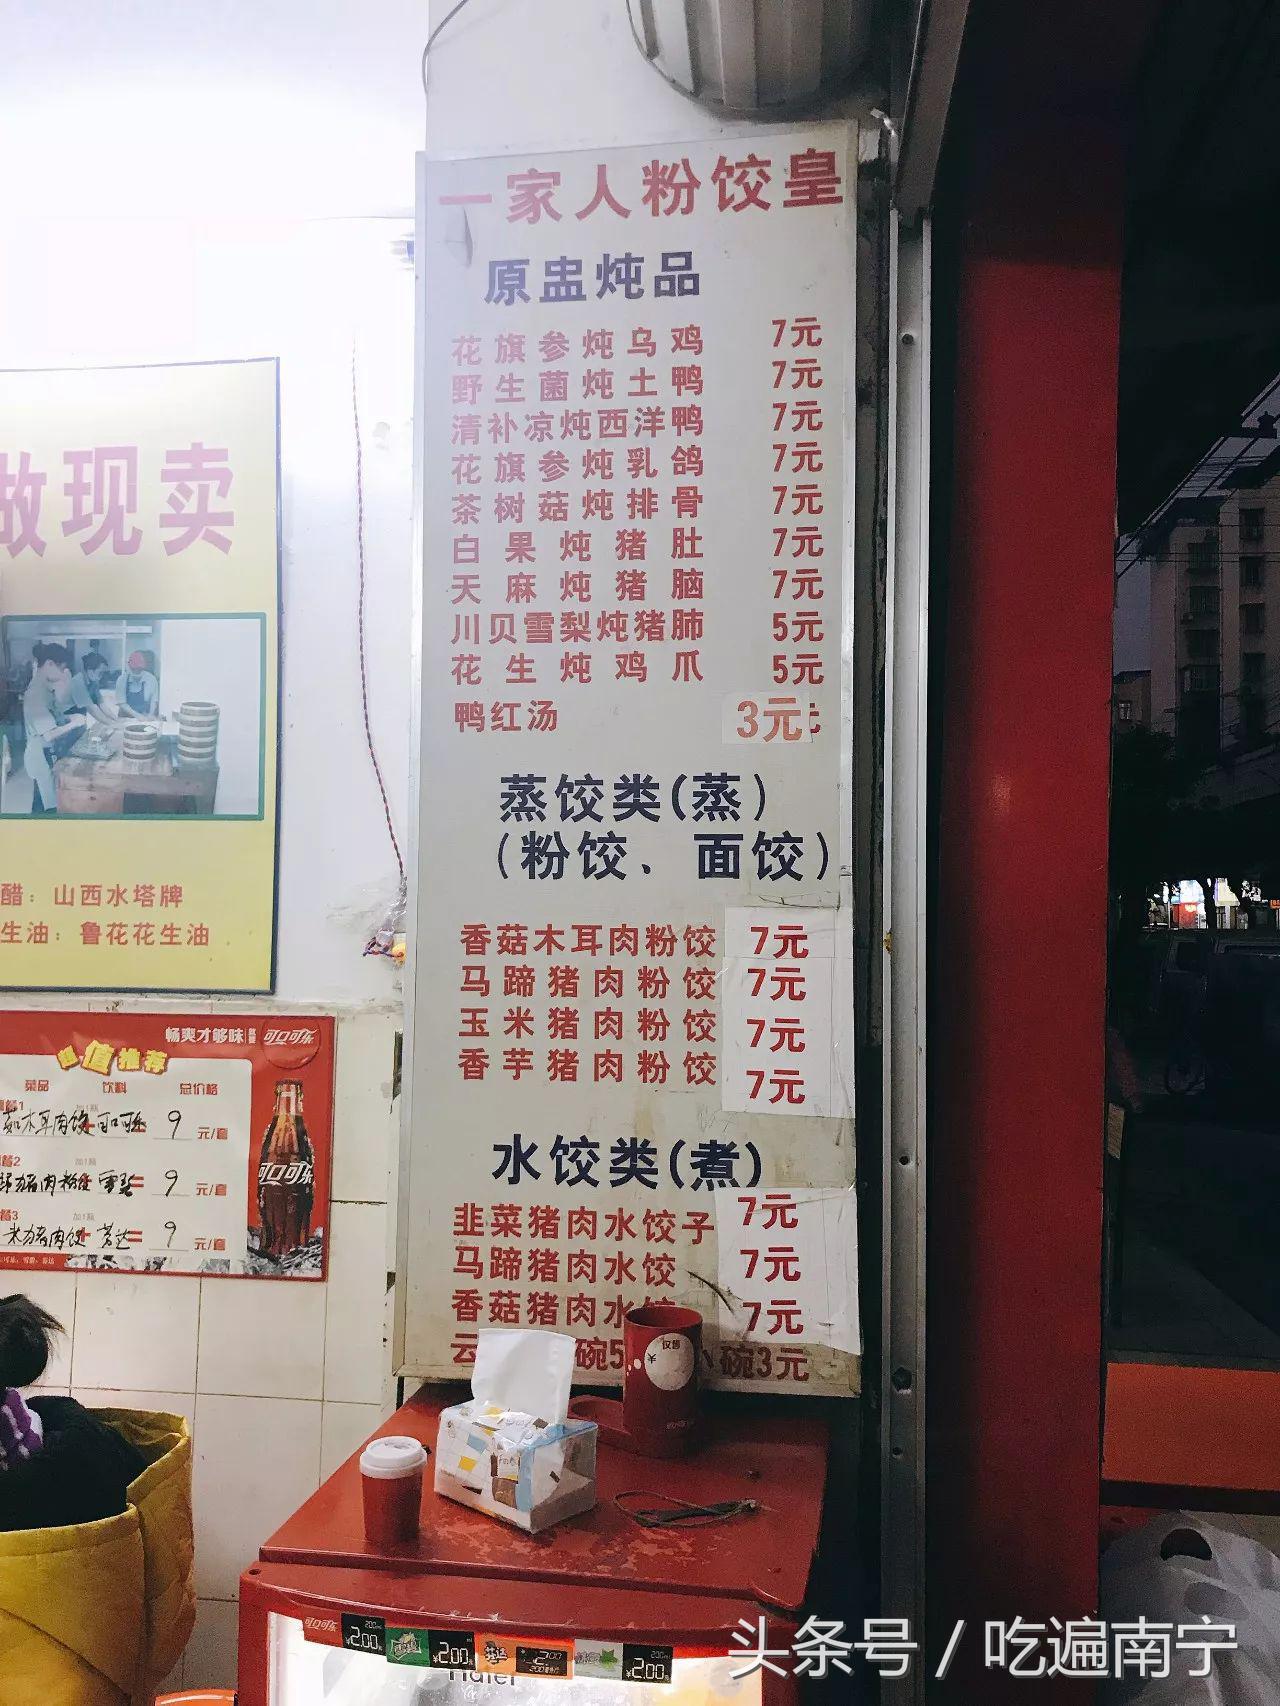 一家人粉饺皇
原盅炖品
花旗参炖乌鸡 7元
野生菌炖土鸭 7元
清补凉炖西洋鸭 7元
花旗参炖乳鸽 7元
茶树菇炖排骨 7元
白果炖猪肚 7元
天麻炖猪脑 7元
川贝雪梨炖猪肺 5元
花生炖鸡爪 5元
鸭红汤 3元
蒸饺类(蒸)
(粉饺、面饺)
香菇木耳肉粉饺 7元
马蹄猪肉粉饺 7元
玉米猪肉粉饺 7元
香芋猪肉粉饺 7元
水饺类(煮)
韭菜猪肉水饺子 7元
马蹄猪肉水饺 7元
香菇猪肉水饺 7元
云 碗5 小碗3元
做现卖
醋：山西水塔牌
生油：鲁花花生油
畅爽才够味 可口可乐
超值推荐
菜品 饮料 总价格
餐1 木耳肉饺 加1瓶 可口可乐 = 9 元/套
餐2 猪肉粉饺 加1瓶 雪碧 = 9 元/套
餐3 米猪肉饺 加1瓶 芬达 = 9 元/套
可口可乐
仅售
可口可乐 ¥2.00 ¥2.00 2.00 ¥2.00
Haier
头条号 / 吃遍南宁